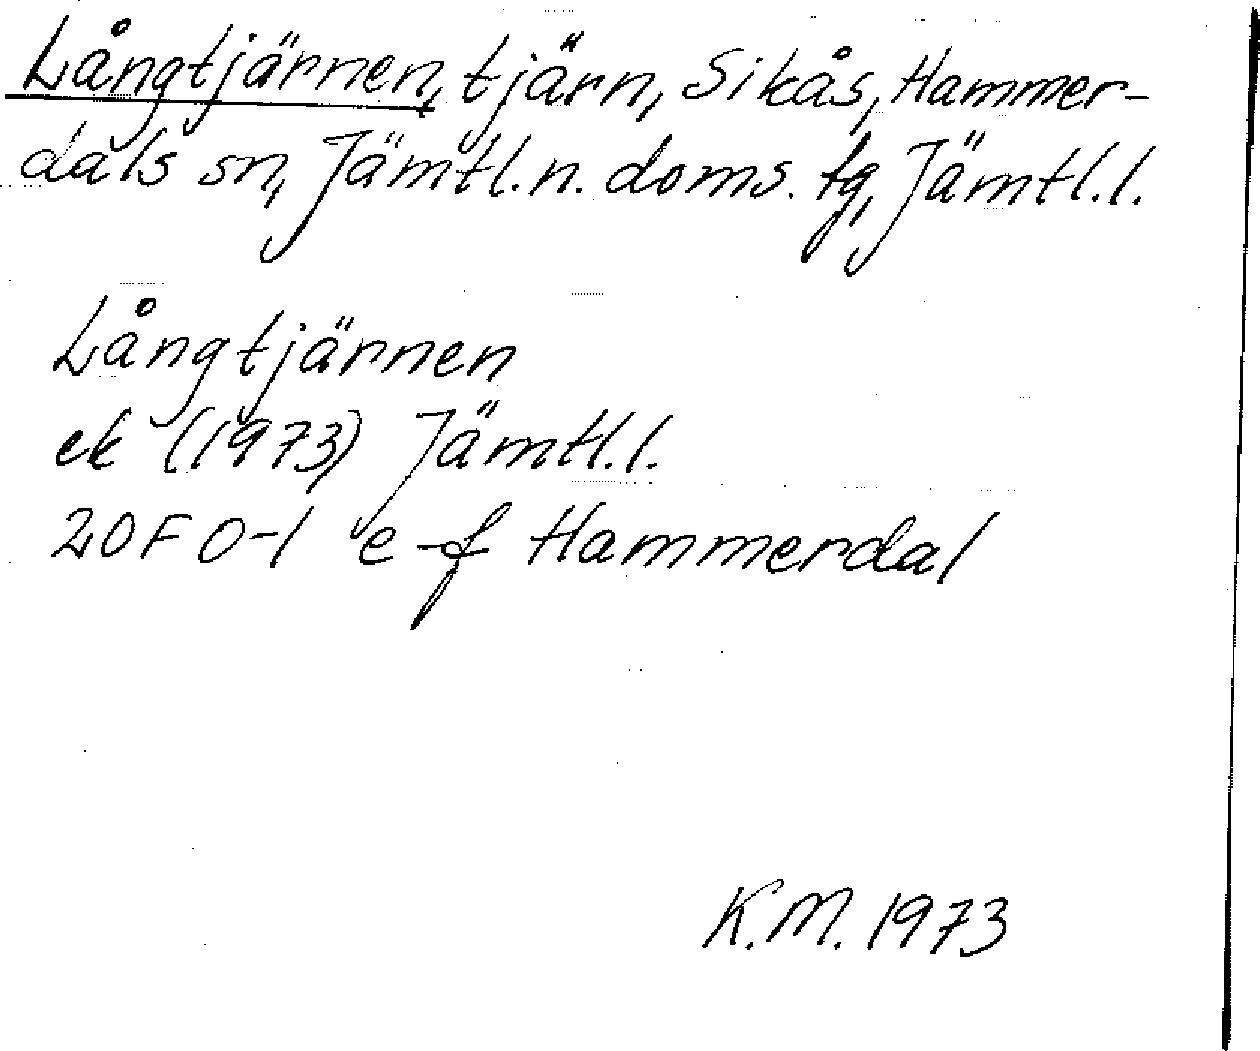 Långtjärnen, tjärn, Sikås, Hammer-
dals sn, Jämtl.n. doms. tg, Jämtl.l.
Långtjärnen
ek (1973) Jämtl.l.
20F 0-1 e-f Hammerdal
K.M. 1973